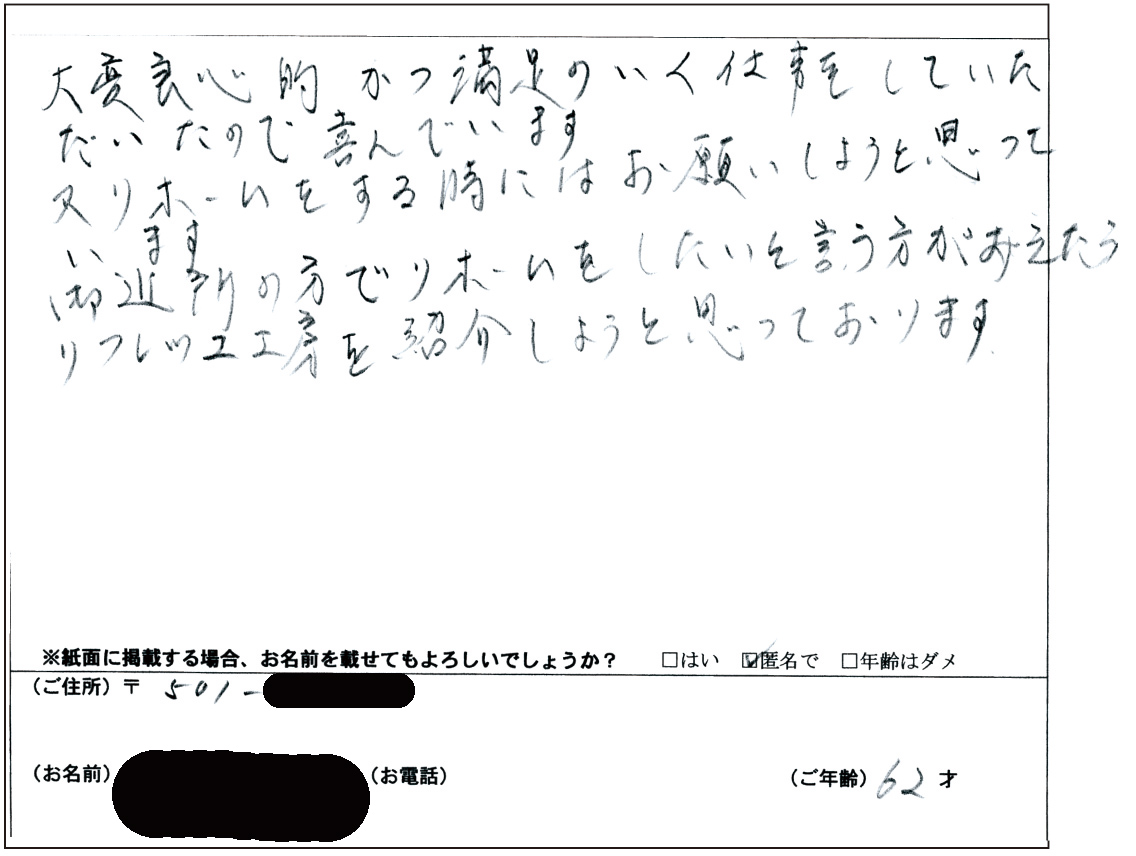 大変良心的かつ満足のいく仕事をしていた
だいたので喜んでいます
又リホームをする時にはお願いしようと思って
います
御近所の方でリホームをしたいと言う方がおえたら
リフレッツ工房を紹介しようと思っております
※紙面に掲載する場合、お名前を載せてもよろしいでしょうか？　□はい　☑匿名で　□年齢はダメ
（ご住所）〒 501-
（お名前）　（お電話）　（ご年齢）62才